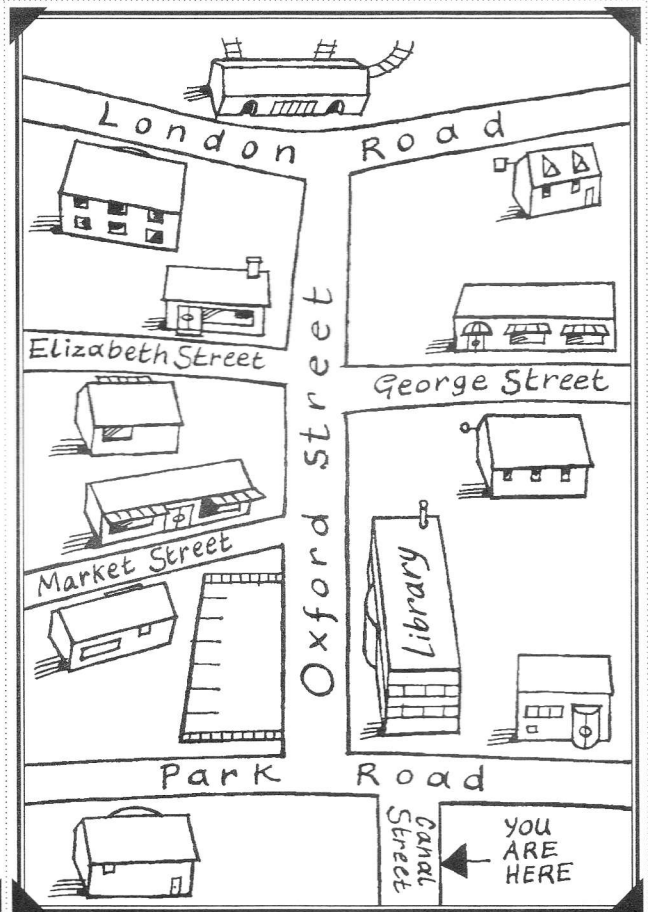 London Road
Elizabeth Street
George Street
Oxford Street
Market Street
Library
Park Road
Canal
Street
YOU
ARE
HERE